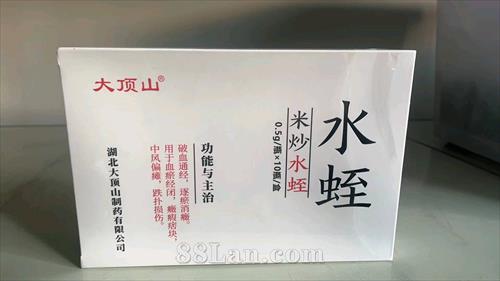 大顶山®
水蛭
米炒水蛭
0.5g/瓶×10瓶/盒
功能与主治
破血通经，逐瘀消癥。
用于血瘀经闭，癥瘕痞块，
中风偏瘫，跌扑损伤。
湖北大顶山制药有限公司
88Lan.com